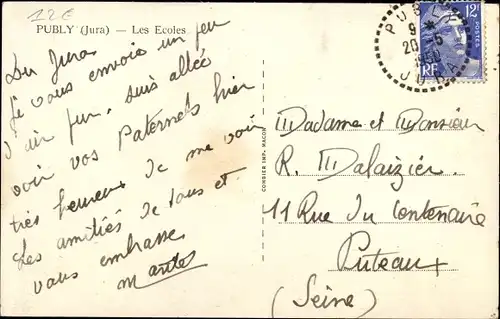 12€
PUBLY (Jura) — Les Ecoles
Du Jura
Je vous envoie un peu
d'air pur, suis allée
voir vos Paternels hier
très heureux de me voir
Les amitiés de tous et
vous embrasse
CONBIER IMP. MACON
PUBLY
9 *
20 - 5
1950
JURA
12F
POSTES
RF
Madame et Monsieur
R. Malaizier
11 Rue du Centenaire
Puteaux
(Seine)